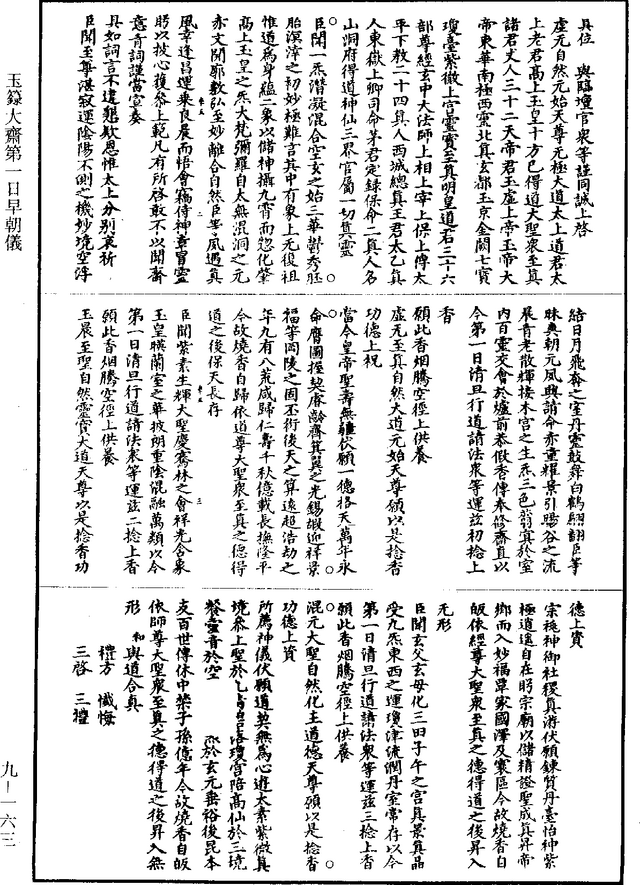 具位　與臨壇官衆等謹同誠上啓
虛无自然元始天尊元極大道太上道君太
上老君高上玉皇十方已得道大聖衆至真
諸君丈人三十二天帝君玉虛上帝玉帝大
帝東華南極西靈北真玄都玉京金闕七寳
瓊臺紫微上宫靈寳至真明皇道君三十六
部尊經玄中大法師上相上宰上保上傅太
平下教二十四真人西城總真王君太乙真
人東嶽上卿司命茅君定錄保命二真人名
山洞府得道神仙三界官屬一切真靈
臣聞一炁潛凝混合空玄之始三華欝秀胚
胎溟涬之初妙極難言其中有象上无復祖
惟道爲身蘊二象以儲神攝九霄而惣化肇
高上玉皇之炁大梵彌羅自太無混洞之元
赤文開廓敷弘至妙離合自然臣等夙遇真
風幸逢昌運乘良晨而悟會竊侍神章冒靈
貺以披心獲參上範凡有所啓敢不以聞齋
意青詞謹當宣奏
具如詞言不違懇欵恩惟太上分别哀祈
臣聞至尊湛寂運陰陽不測之機妙境空浮
結日月飛奔之室丹靈鼓舞白鶴翩翻臣等
昧典朝元夙興請命赤童耀景引暘谷之流
晨青老散輝接木宫之生炁三色翁霣於室
内百靈交會於爐前恭假香傳奉修齋直以
今第一日清旦行道請法衆等運兹初捻上
香
願此香烟騰空徑上供養
虛无至真自然大道元始天尊願以是捻香
功德上祝
當今皇帝聖壽無疆伏願一德格天萬年永
命膺圖握契慶齡齊箕翼之光錫嘏迎祥景
福等岡陵之固丕衍後天之算遠超浩劫之
年九有八荒咸歸仁壽千秋億載長撫隆平
今故燒香自歸依道尊大聖衆至真之德得
道之後保天長存
臣聞紫素生輝大聖慶騫林之會祥光含象
玉皇暎蘭室之華披朗重陰混融萬類以今
第一日清旦行道請法衆等運兹二捻上香
願此香烟騰空徑上供養
玉晨至聖自然靈寳大道天尊以是捻香功
德上資
宗祧神御社稷真游伏願鍊質丹臺怡神紫
極逍遥自在昭宗廟以儲精證聖成真昇帝
鄉而入妙福覃家國澤及寰區今故燒香自
皈依經尊大聖衆至真之德得道之後昇入
无形
臣聞玄父玄母化三田子午之宫真景真晶
受九炁東西之運瓊津流潤丹室常存以今
第一日清旦行道請法衆等運兹三捻上香
願此香烟騰空徑上供養
混元大聖自然化主道德天尊願以是捻香
功德上資
所薦神儀伏願道契無爲心遊太素紫微真
境參上聖於
瓊宫陪高仙於三境
餐靈音於空
炁於玄元垂裕後昆本
支百世傳休中葉子孫億年今故燒香自皈
依師尊大聖衆至真之德得道之後昇入無
形　和與道合真
禮方　懺悔
三啓　三禮
玉籙大齋第一日早朝儀
九－一六三